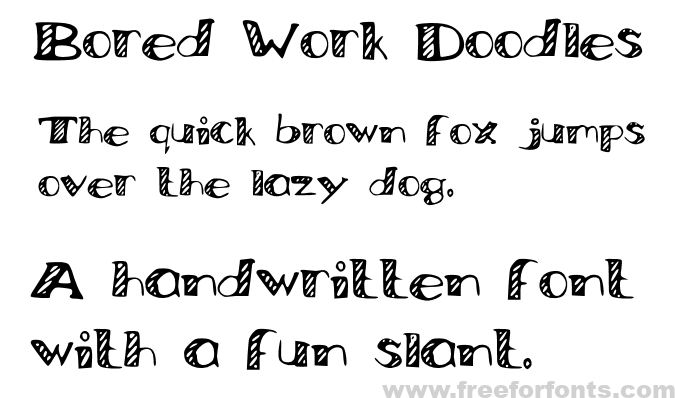 Bored Work Doodles
The quick brown fox jumps
over the lazy dog.
A handwritten font
with a fun slant.
www.freeforfonts.com